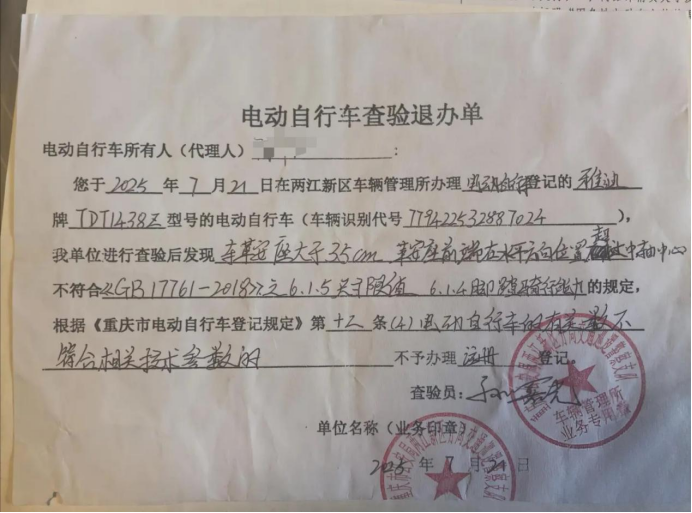 电动自行车查验退办单
电动自行车所有人（代理人）：
您于2025年7月21日在两江新区车辆管理所办理电动自行车登记的雅迪
牌TDT1438Z型号的电动自行车（车辆识别代号779422532887024），
我单位进行查验后发现车鞍座大于35cm 车鞍座前端在水平方向位置超过中轴中心
不符合《GB17761-2018》之6.1.5关于限值 6.1.4脚踏骑行能力的规定，
根据《重庆市电动自行车登记规定》第十二条(4)电动自行车的有关参数不
符合相关技术参数的不予办理注册登记。
查验员：
单位名称（业务印章）
2025年7月21日
车辆管理所
业务专用